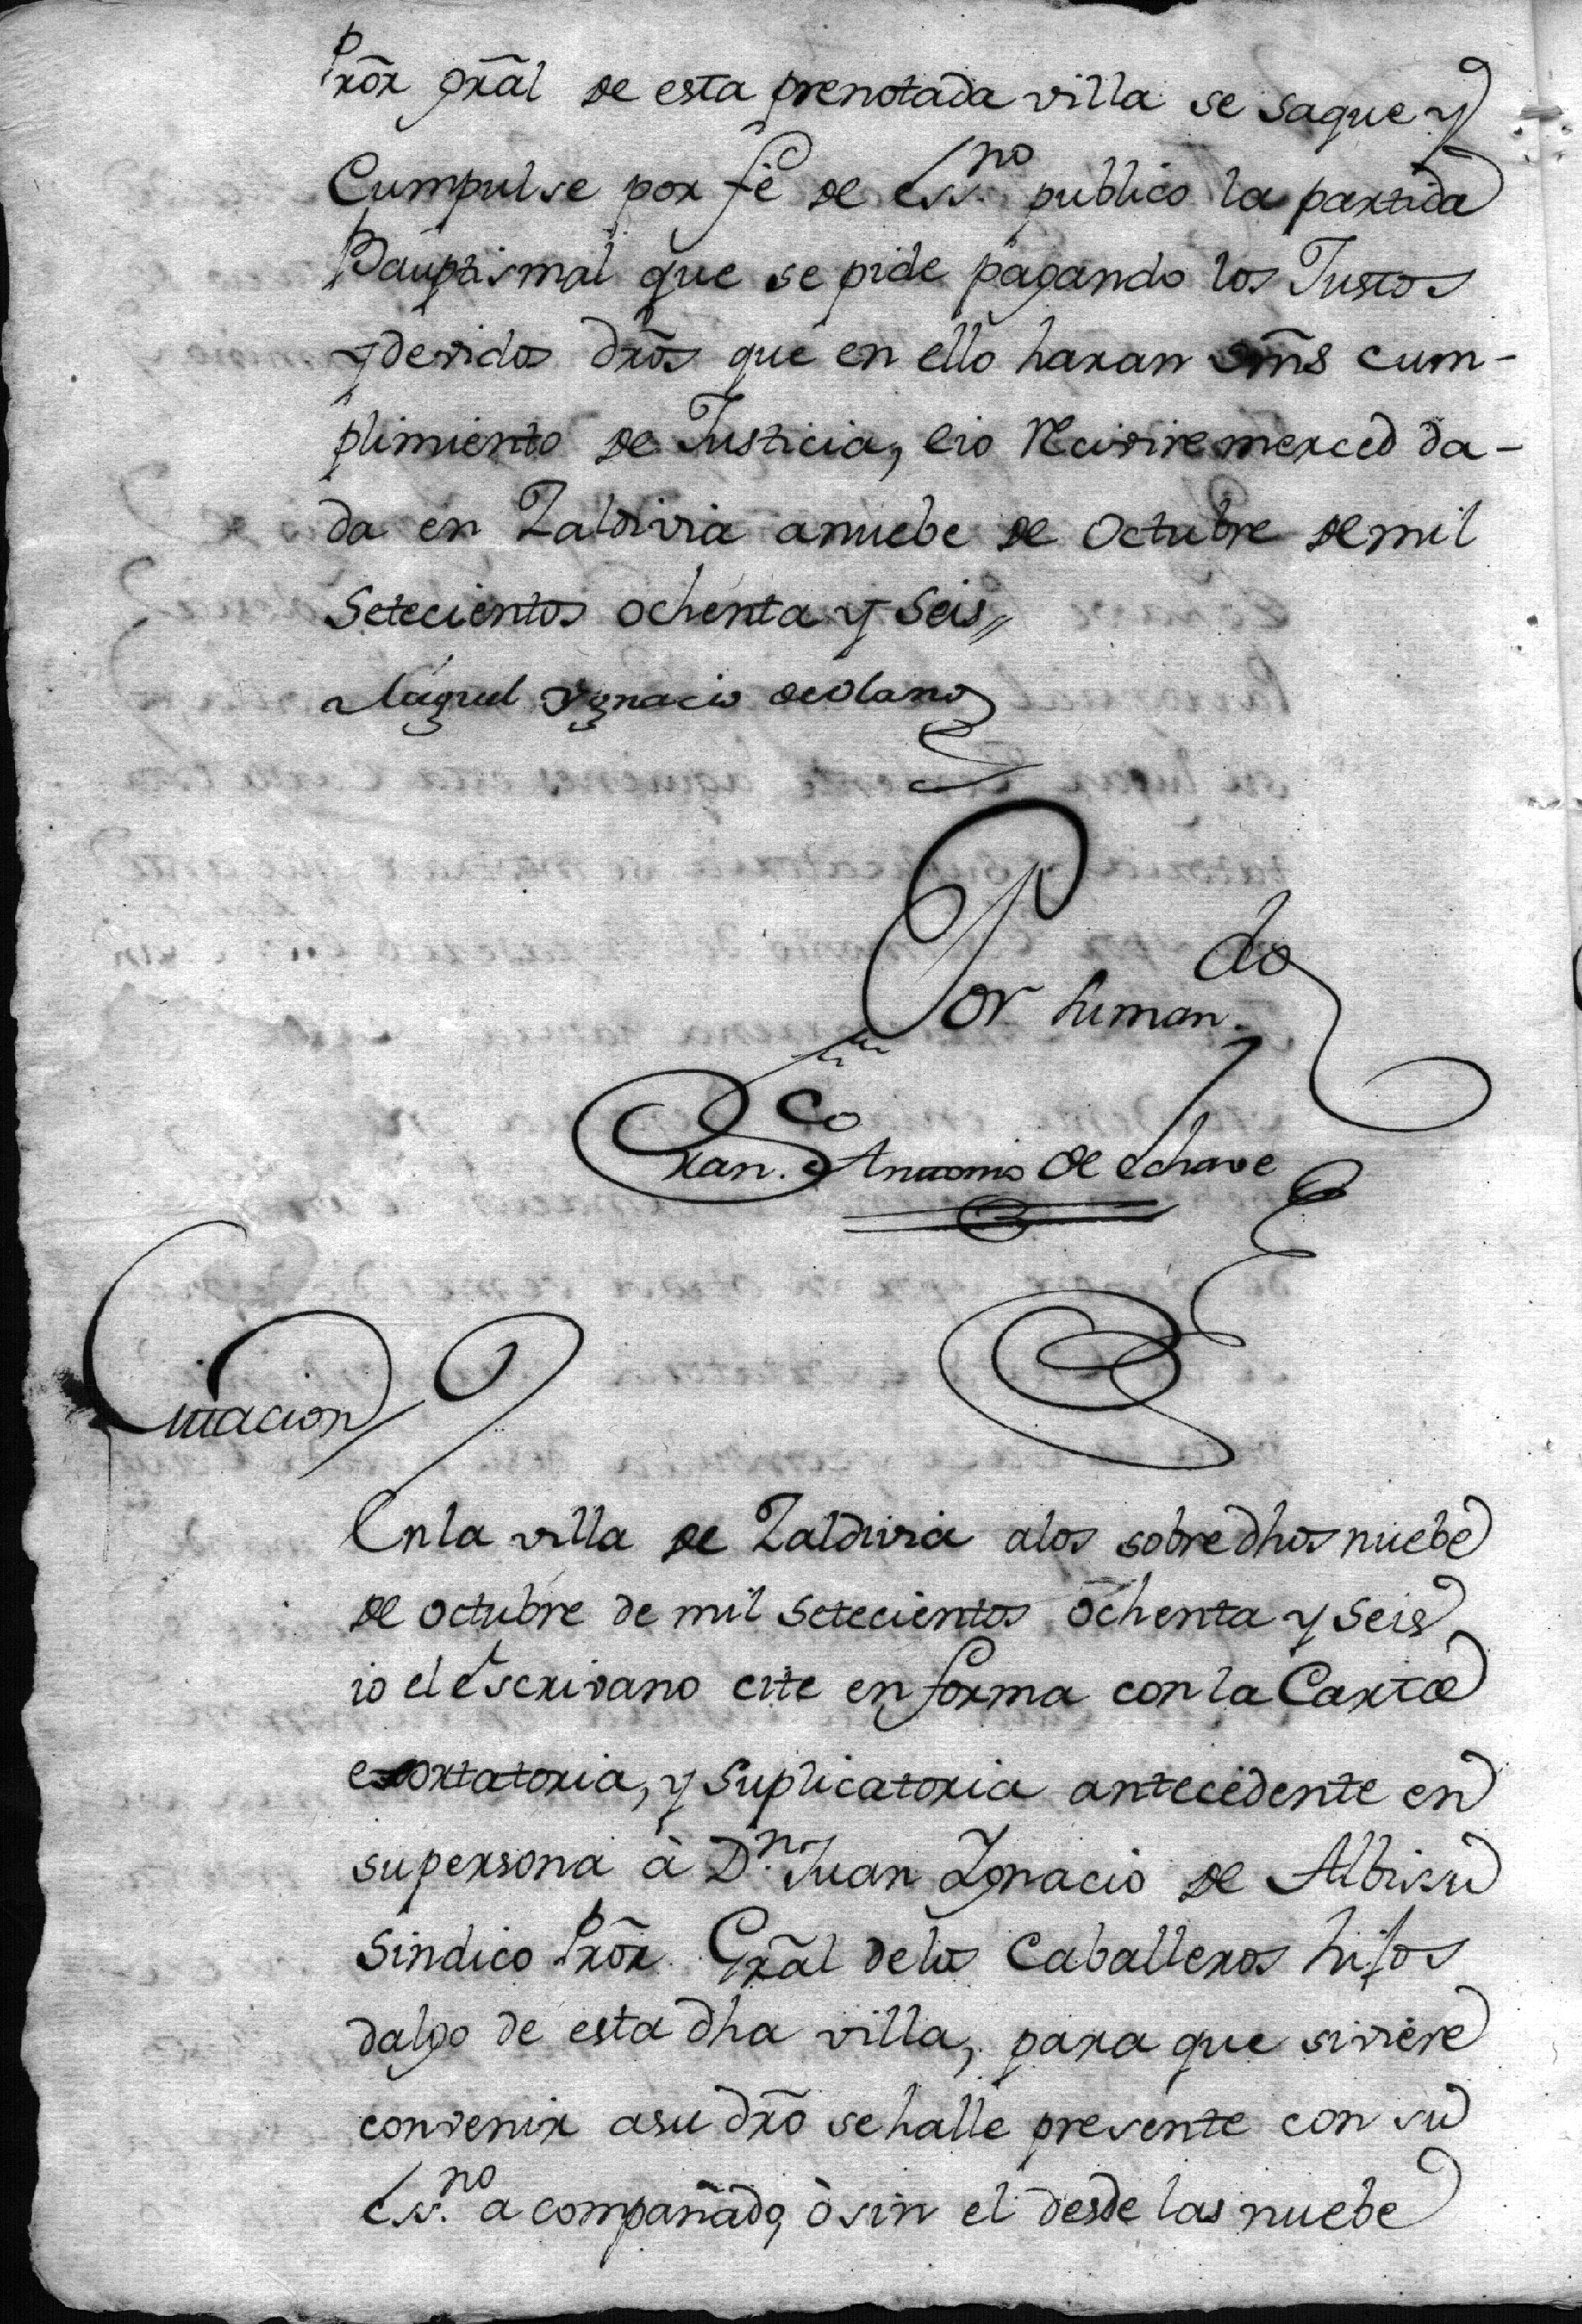 Prõr grãl de esta prenotada villa se saque y
Cumpulse por fe de Ess.no publico la partida
Bauptismal que se pide pagando los Justos
y devidos drõs que en ello haran vm̃s cum-
plimiento de Justicia, eio Recivire merced da-
da en Zaldivia anuebe de Octubre de mil
Setecientos ochenta y Seis,,
Miguel Ygnacio de Olano
Por suman.do
Fran.co Antonio de Echave
Citacion
En la villa de Zaldivia alos sobre dhos nuebe
de octubre de mil setecientos ochenta y seis
io el escrivano cite en forma con la Carta
exortatoria, y suplicatoria antecedente en
su persona à D.n Juan Ignacio de Albisu
Sindico Prõr Grãl delos Caballeros hijos
dalgo de esta dha villa, para que siviere
convenir asu drõ se halle presente con su
Ess.no acompañado, ò sin el desde las nuebe